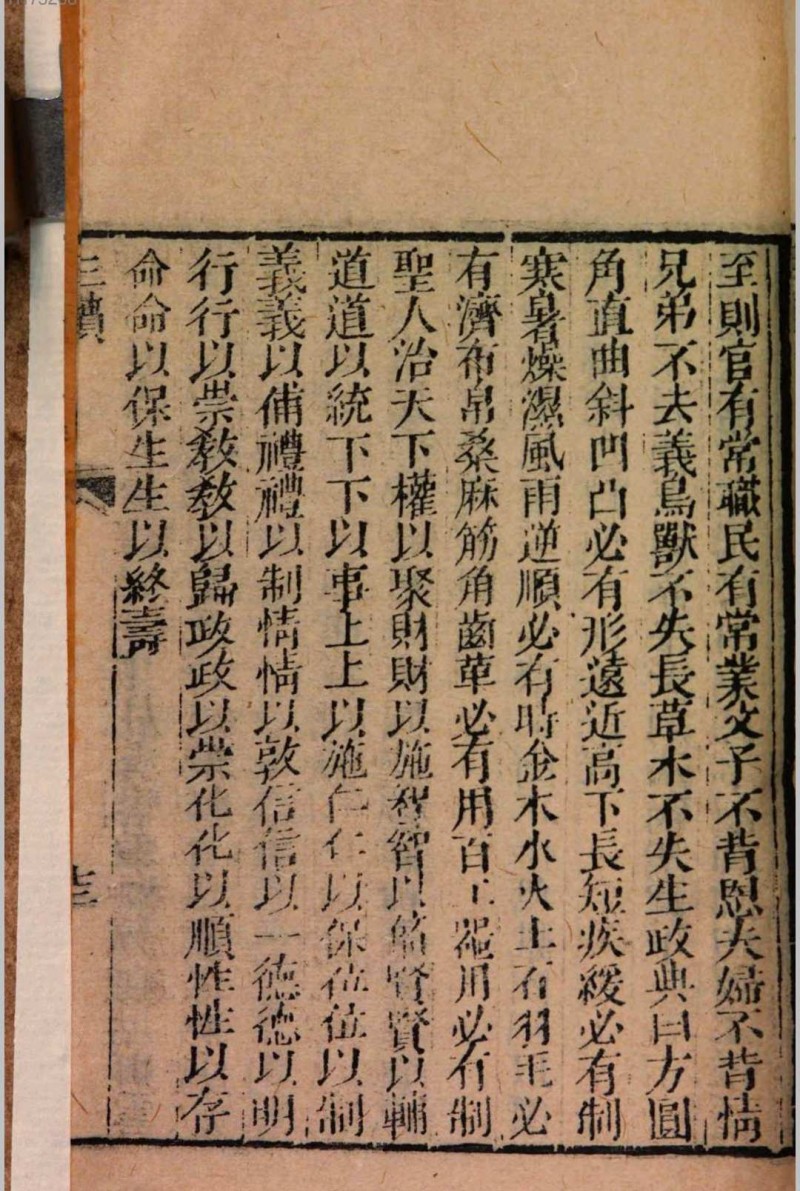 至則官有常職民有常業父子不背恩夫婦不背情
兄弟不去義鳥獸不失長草木不失生政典曰方圓
角直曲斜凹凸必有形遠近高下長短疾緩必有制
寒暑燥濕風雨逆順必有時金木水火土石羽毛必
有濟布帛桑麻筋角齒革必有用百工器用必有制
聖人治天下權以聚財財以施智智以賢賢以輔
道道以統下下以事上上以施仁仁以保位位以制
義義以備禮禮以制情情以敦信信以一德德以明
行行以崇教教以歸政政以崇化化以順性性以存
命命以保生生以終壽
三墳
十三